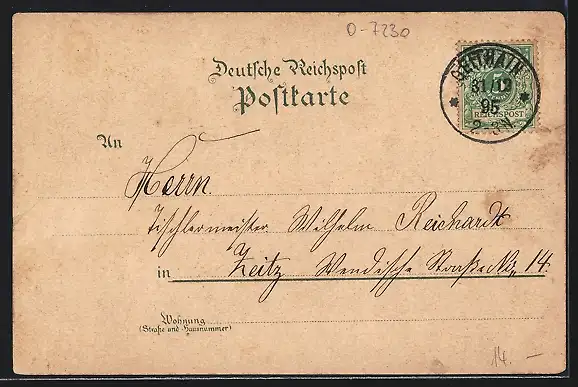 O-7230
Deutsche Reichspost
Postkarte
GEITHAIN
31/12
95
2-3N.
5
REICHSPOST
An
Herrn.
Tischlermeister Wilhelm Reichardt
in Zeitz Wendische Straße 14.
Wohnung
(Straße und Hausnummer)
14.-